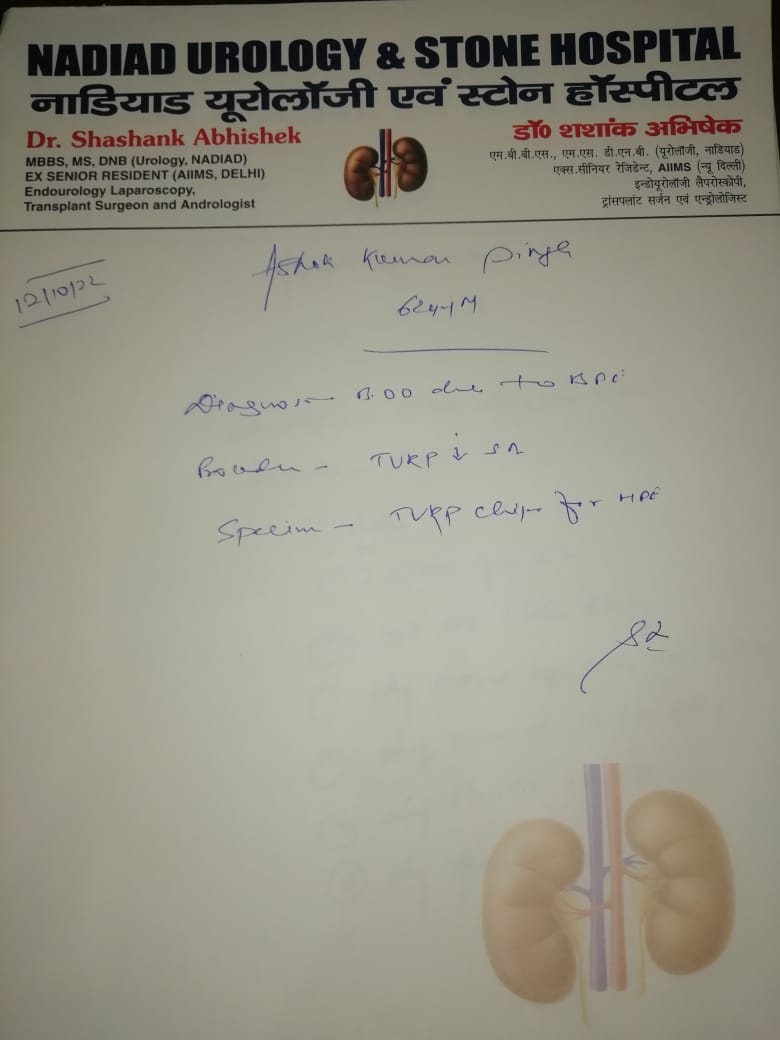 NADIAD UROLOGY & STONE HOSPITAL
नाडियाड यूरोलॉजी एवं स्टोन हॉस्पीटल
Dr. Shashank Abhishek
MBBS, MS, DNB (Urology, NADIAD)
EX SENIOR RESIDENT (AIIMS, DELHI)
Endourology Laparoscopy,
Transplant Surgeon and Andrologist
डॉ० शशांक अभिषेक
एम.बी.बी.एस., एम.एस. डी.एन.बी. (यूरोलॉजी, नाडियाड)
एक्स.सीनियर रेजिडेन्ट, AIIMS (न्यू दिल्ली)
इन्डोयूरोलॉजी लैपरोस्कोपी,
ट्रांसप्लांट सर्जन एवं एन्ड्रोलॉजिस्ट
12/10/22
Ashok Kumar Singh
62y/M
Diagnosis BOO due to BPE
TURP ↓ SA
Specim - TURP chips for HPE